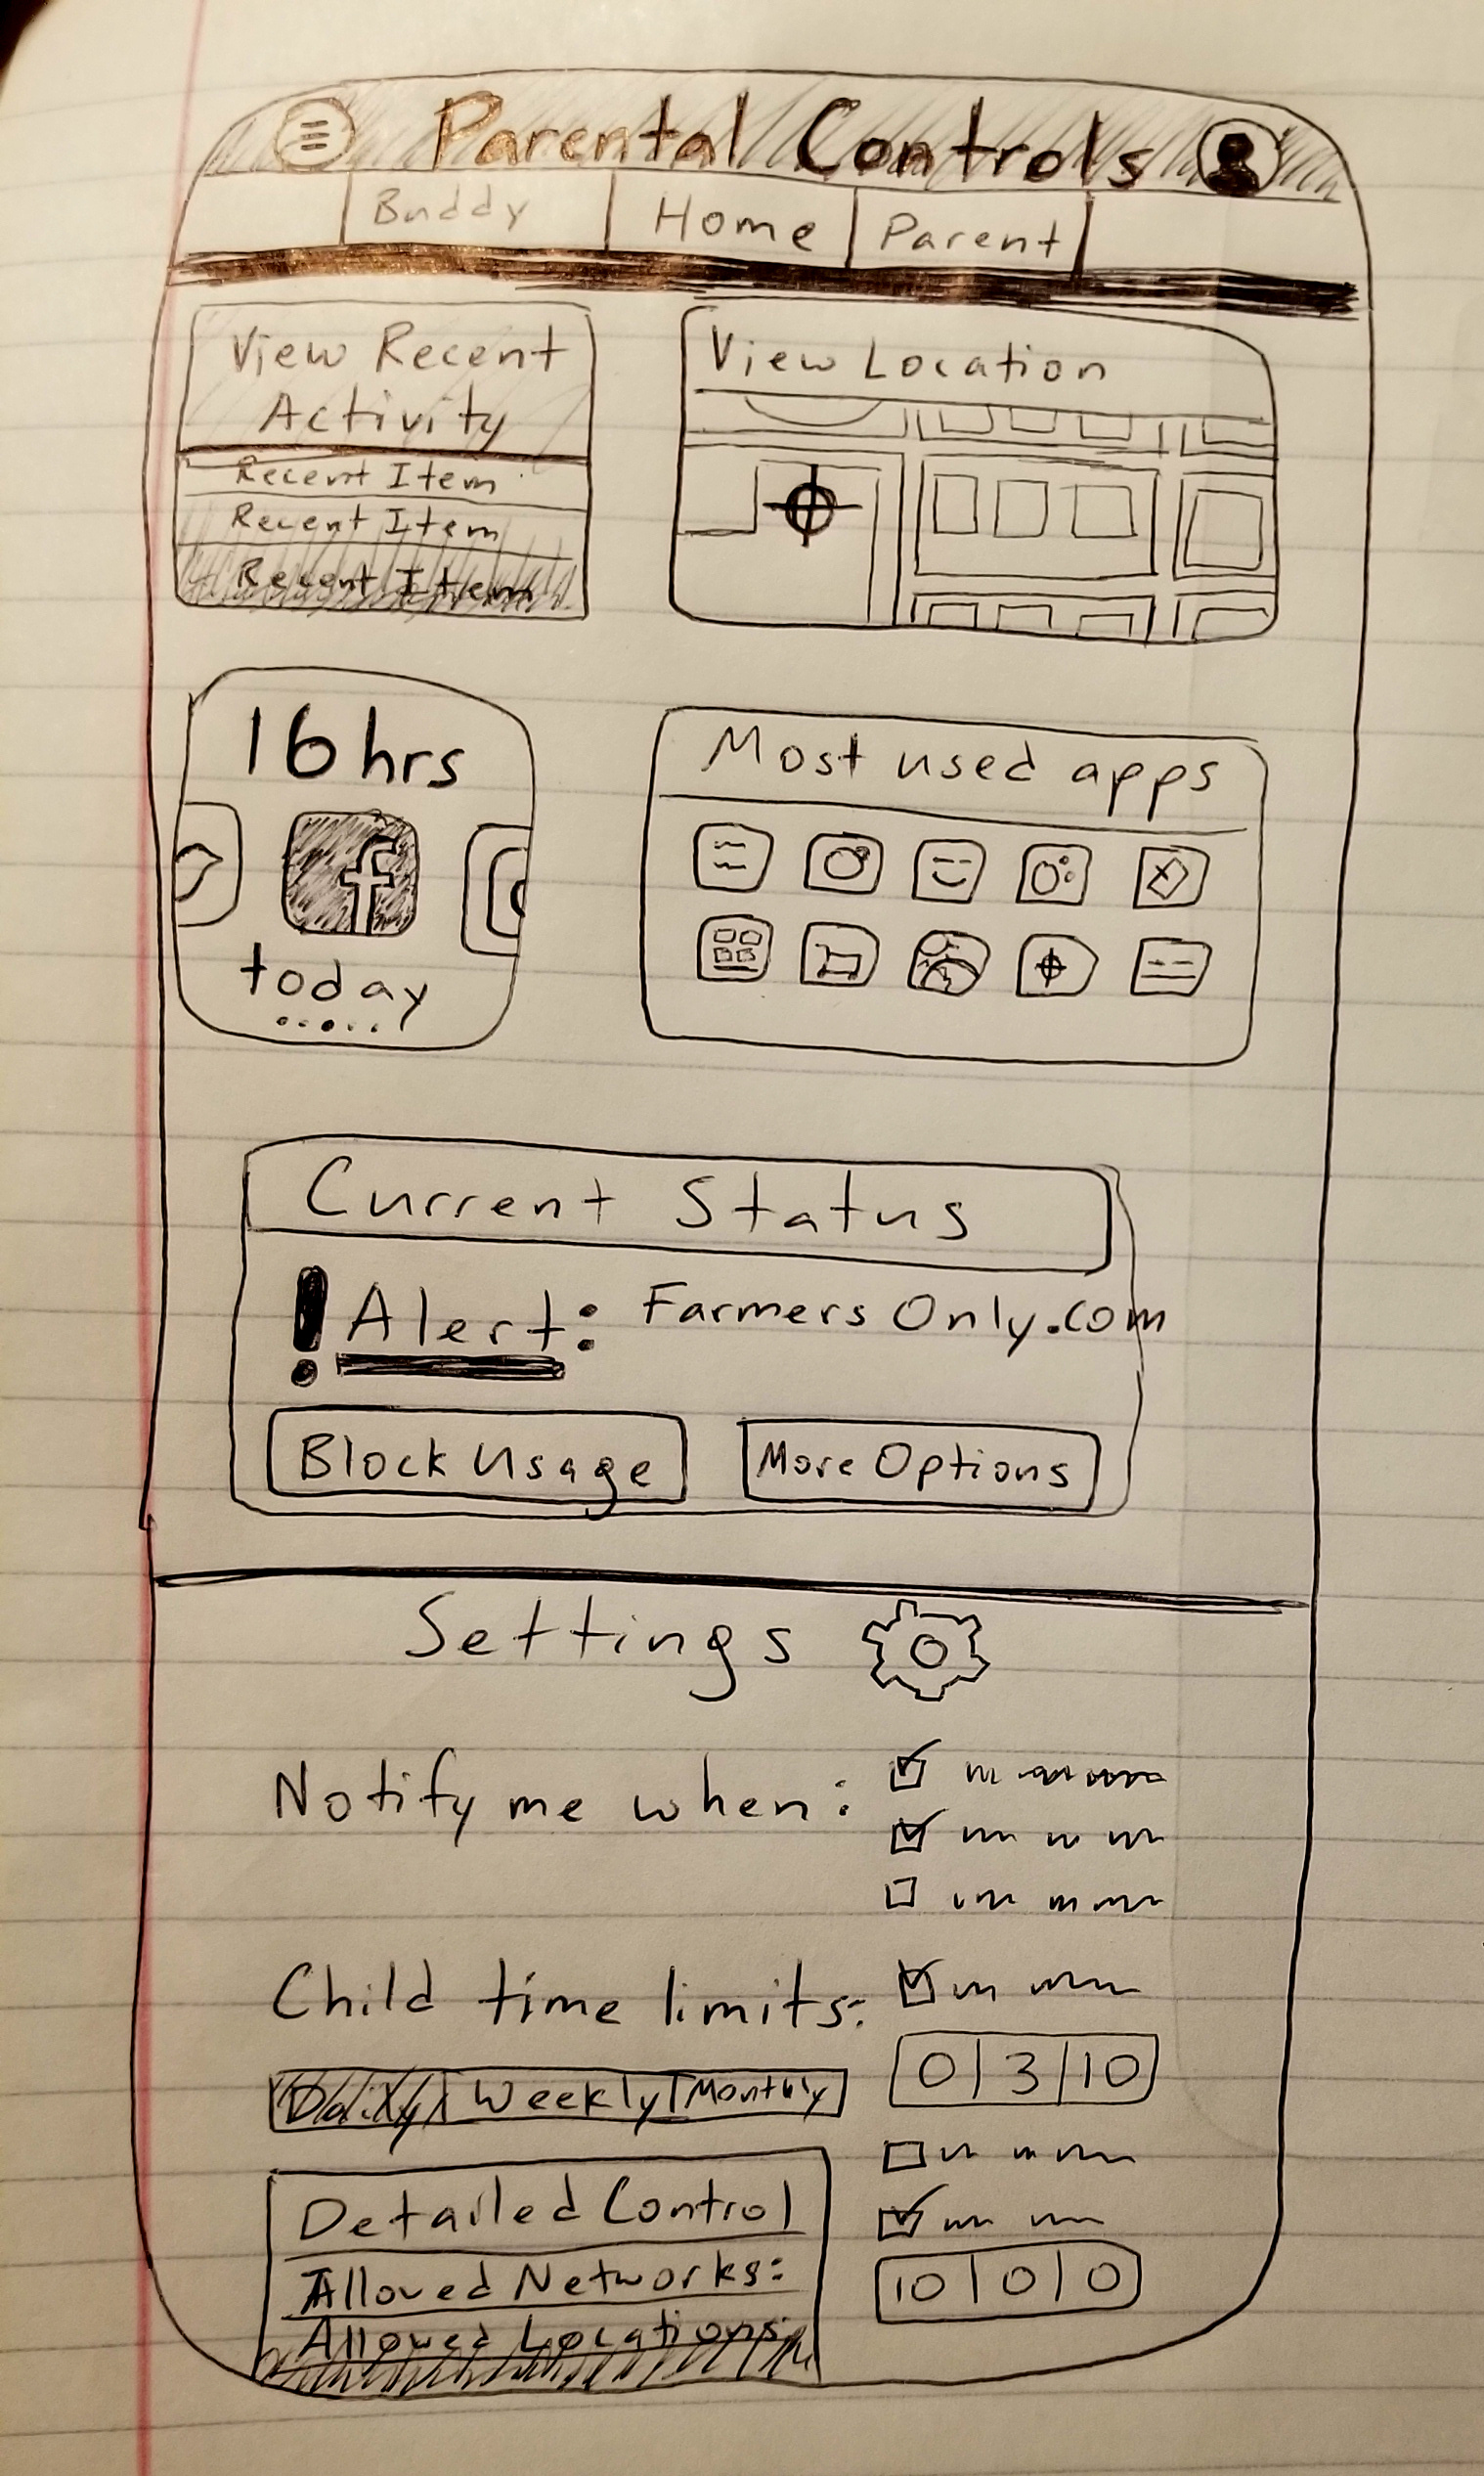 Parental Controls
Buddy Home Parent
View Recent
Activity
Recent Item
Recent Item
Recent Item
View Location
16 hrs
f
today
Most used apps
Current Status
! Alert: Farmers Only.com
Block Usage
More Options
Settings
Notify me when:
Child time limits:
0 3 10
Daily Weekly Monthly
Detailed Control
Allowed Networks:
Allowed Locations:
10 0 0